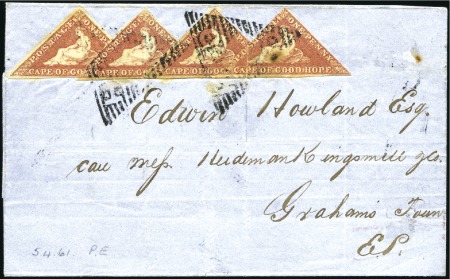 POSTAGE ONE PENNY POSTAGE ONE PENNY POSTAGE ONE PENNY ONE PENNY
CAPE OF GOOD HOPE CAPE OF GO CAPE OF GO CAPE OF GOOD HOPE
Edwin Howland Esq.
care Messs Heideman Kingsmill &Co.
Grahams Town
E.P.
5.4.61. P.E